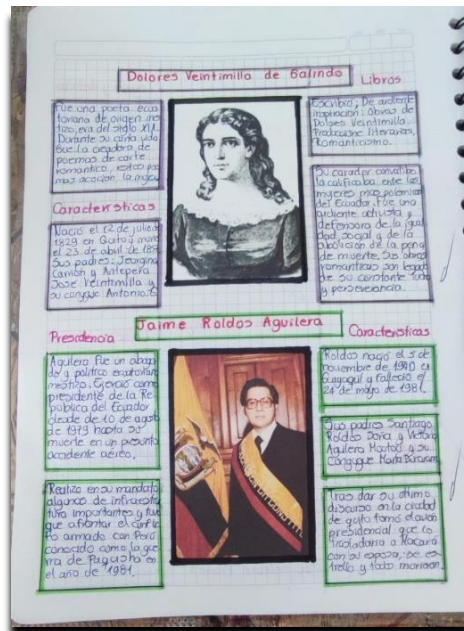 Dolores Veintimilla de Galindo
Libros
Fue una poeta ecua
toriana de origen mes
tizo, era del siglo XIX.
Durante su corta vida
fue la creadora de
poemas de corte
romántico, estos poe
mas acogian la mujer
Características
Nació el 12 de julio de
1829 en Quito y murió
el 23 de abril de
Sus padres: Jeronyma
Carrión y Antepara
Jose Veintimilla y
su conyuge Antonio. G
Escribió, De ardiente
inspiración: Obras de
Dolores Veintimilla:
Producciones literarias,
Romanticismo.
Su caracter
la calificaba entre las
mujeres mas polemicas
del Ecuador. Fue una
ardiente activista y
defensora de la igual
dad social y de la
abolición de la pena
de muerte. Sus obras
romanticas son legado
de su constante lucha
y perseverancia.
Jaime Roldos Aguilera
Presidencia
Aguilera fue un aboga
do y politico ecuatoriano
Ejercio como
presidente de la Re
pública del Ecuador
desde de 10 de agosto
de 1979 hasta su
muerte en un presunto
accidente aéreo.
Realizo en su mandato
algunas de infraestruc
tura importantes y tuvo
que afrontar el conflic
to armado con Perú
conocido como la gue
rra de Paquisha en
el año de 1981.
Características
Roldos nació el 5 de
noviembre de 1940 en
Guayaquil y falleció el
24 de mayo de 1981.
Sus padres Santiago
Roldós Soria y Victoria
Aguilera Mouton y su
Conyugue Marta Bucaram
Tras dar su último
discurso en la ciudad
de quito tomó el avión
presidencial que lo
trasladaria a Macará
con su esposa, se es
trello y todo murieron.